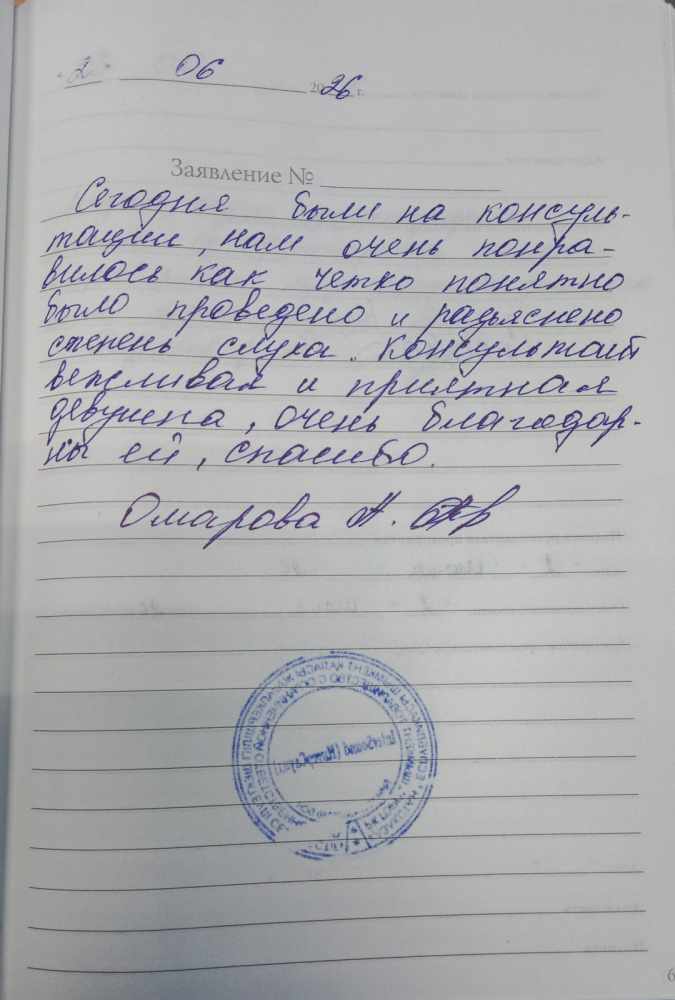 "2" 06 2026 г.
Заявление №
Сегодня были на консуль-
тации, нам очень понра-
вилось как четко понятно
было проведено и разъяснено
степень слуха. Консультант
вежливая и приятная
девушка, очень благодар-
ны ей, спасибо.
Омарова А.
6